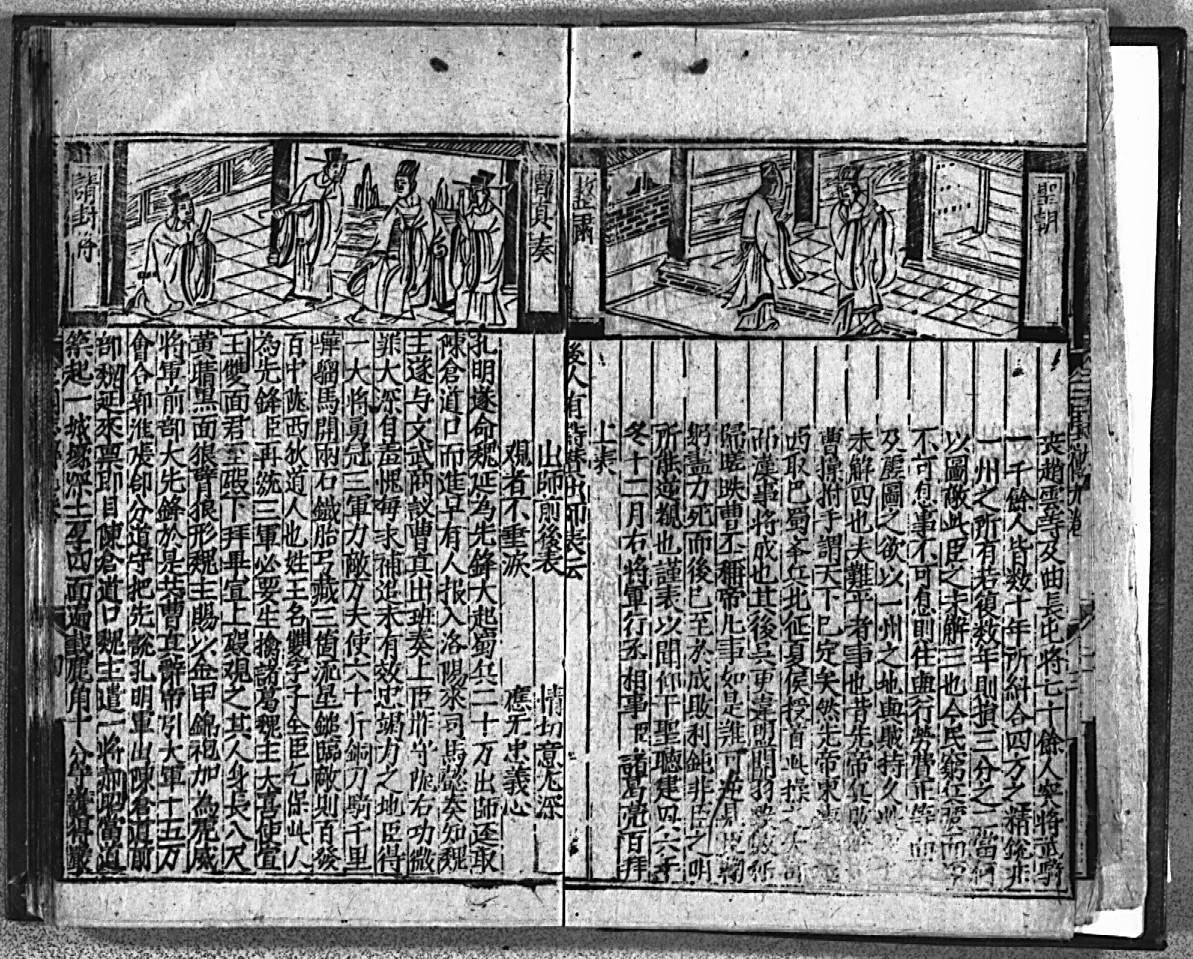 聖朝
整肅
喪趙雲等及曲長屯將七十餘人突將武騎
一千餘人皆数十年所糾合四方之精銳非
一州之所有若復数年則損三分之二當何
以圖敵此臣之未解三也今民窮兵疲而事
不可息事不可息則住與行勞費正等而
及虚圖之欲以一州之地與賊持久此
未解四也夫難平者事也昔先帝敗
曹操拊手謂天下已定矣然先帝東
西取巴蜀举兵北征夏侯授首此操之失
而漢事將成也其後吳更違盟関羽毀敗秭
歸蹉跌曹丕稱帝凢事如是誰可逆見臣鞠
躬盡力死而後已至於成敗利鈍非臣之明
所能逆覩也謹表以聞仰干聖聽建兴六年
冬十二月右將軍行丞相事臣諸葛亮百拜
上表
後人有詩替出師表云
曹真奏
請封
出師前後表 情切意尤深
观者不垂淚 應无忠義心
孔明遂命魏延為先鋒大起蜀兵二十万出師逕取
陳倉道口而進早有人报入洛陽來司馬懿奏知魏
主遂与文武商議曹真出班奏上臣昨守陇右功微
罪大深自羞愧每求補追未有效忠竭力之地臣得
一大將勇冠三軍力敵万夫使六十斤銅刀騎千里
驊騮馬開兩石鐵胎弓藏三箇流星鎚臨敵則百發
百中陇西狄道人也姓王名雙字子全臣乞保此人
為先鋒臣再統三軍必要生擒諸葛魏主大喜使宣
王雙面君至殿下拜畢宣上殿观之其人身長八尺
黄睛黒面狼臂猿形魏主賜以金甲錦袍加為虎威
將軍前部大先鋒於是其曹真辭帝引大軍十五万
會合郭淮張郃分道守把先說孔明軍出陳倉道前
部魏延來禀即目陳倉道口魏主遣一將郝昭當道
築起一城壕深土至四面遍栽鹿角十分守護得嚴